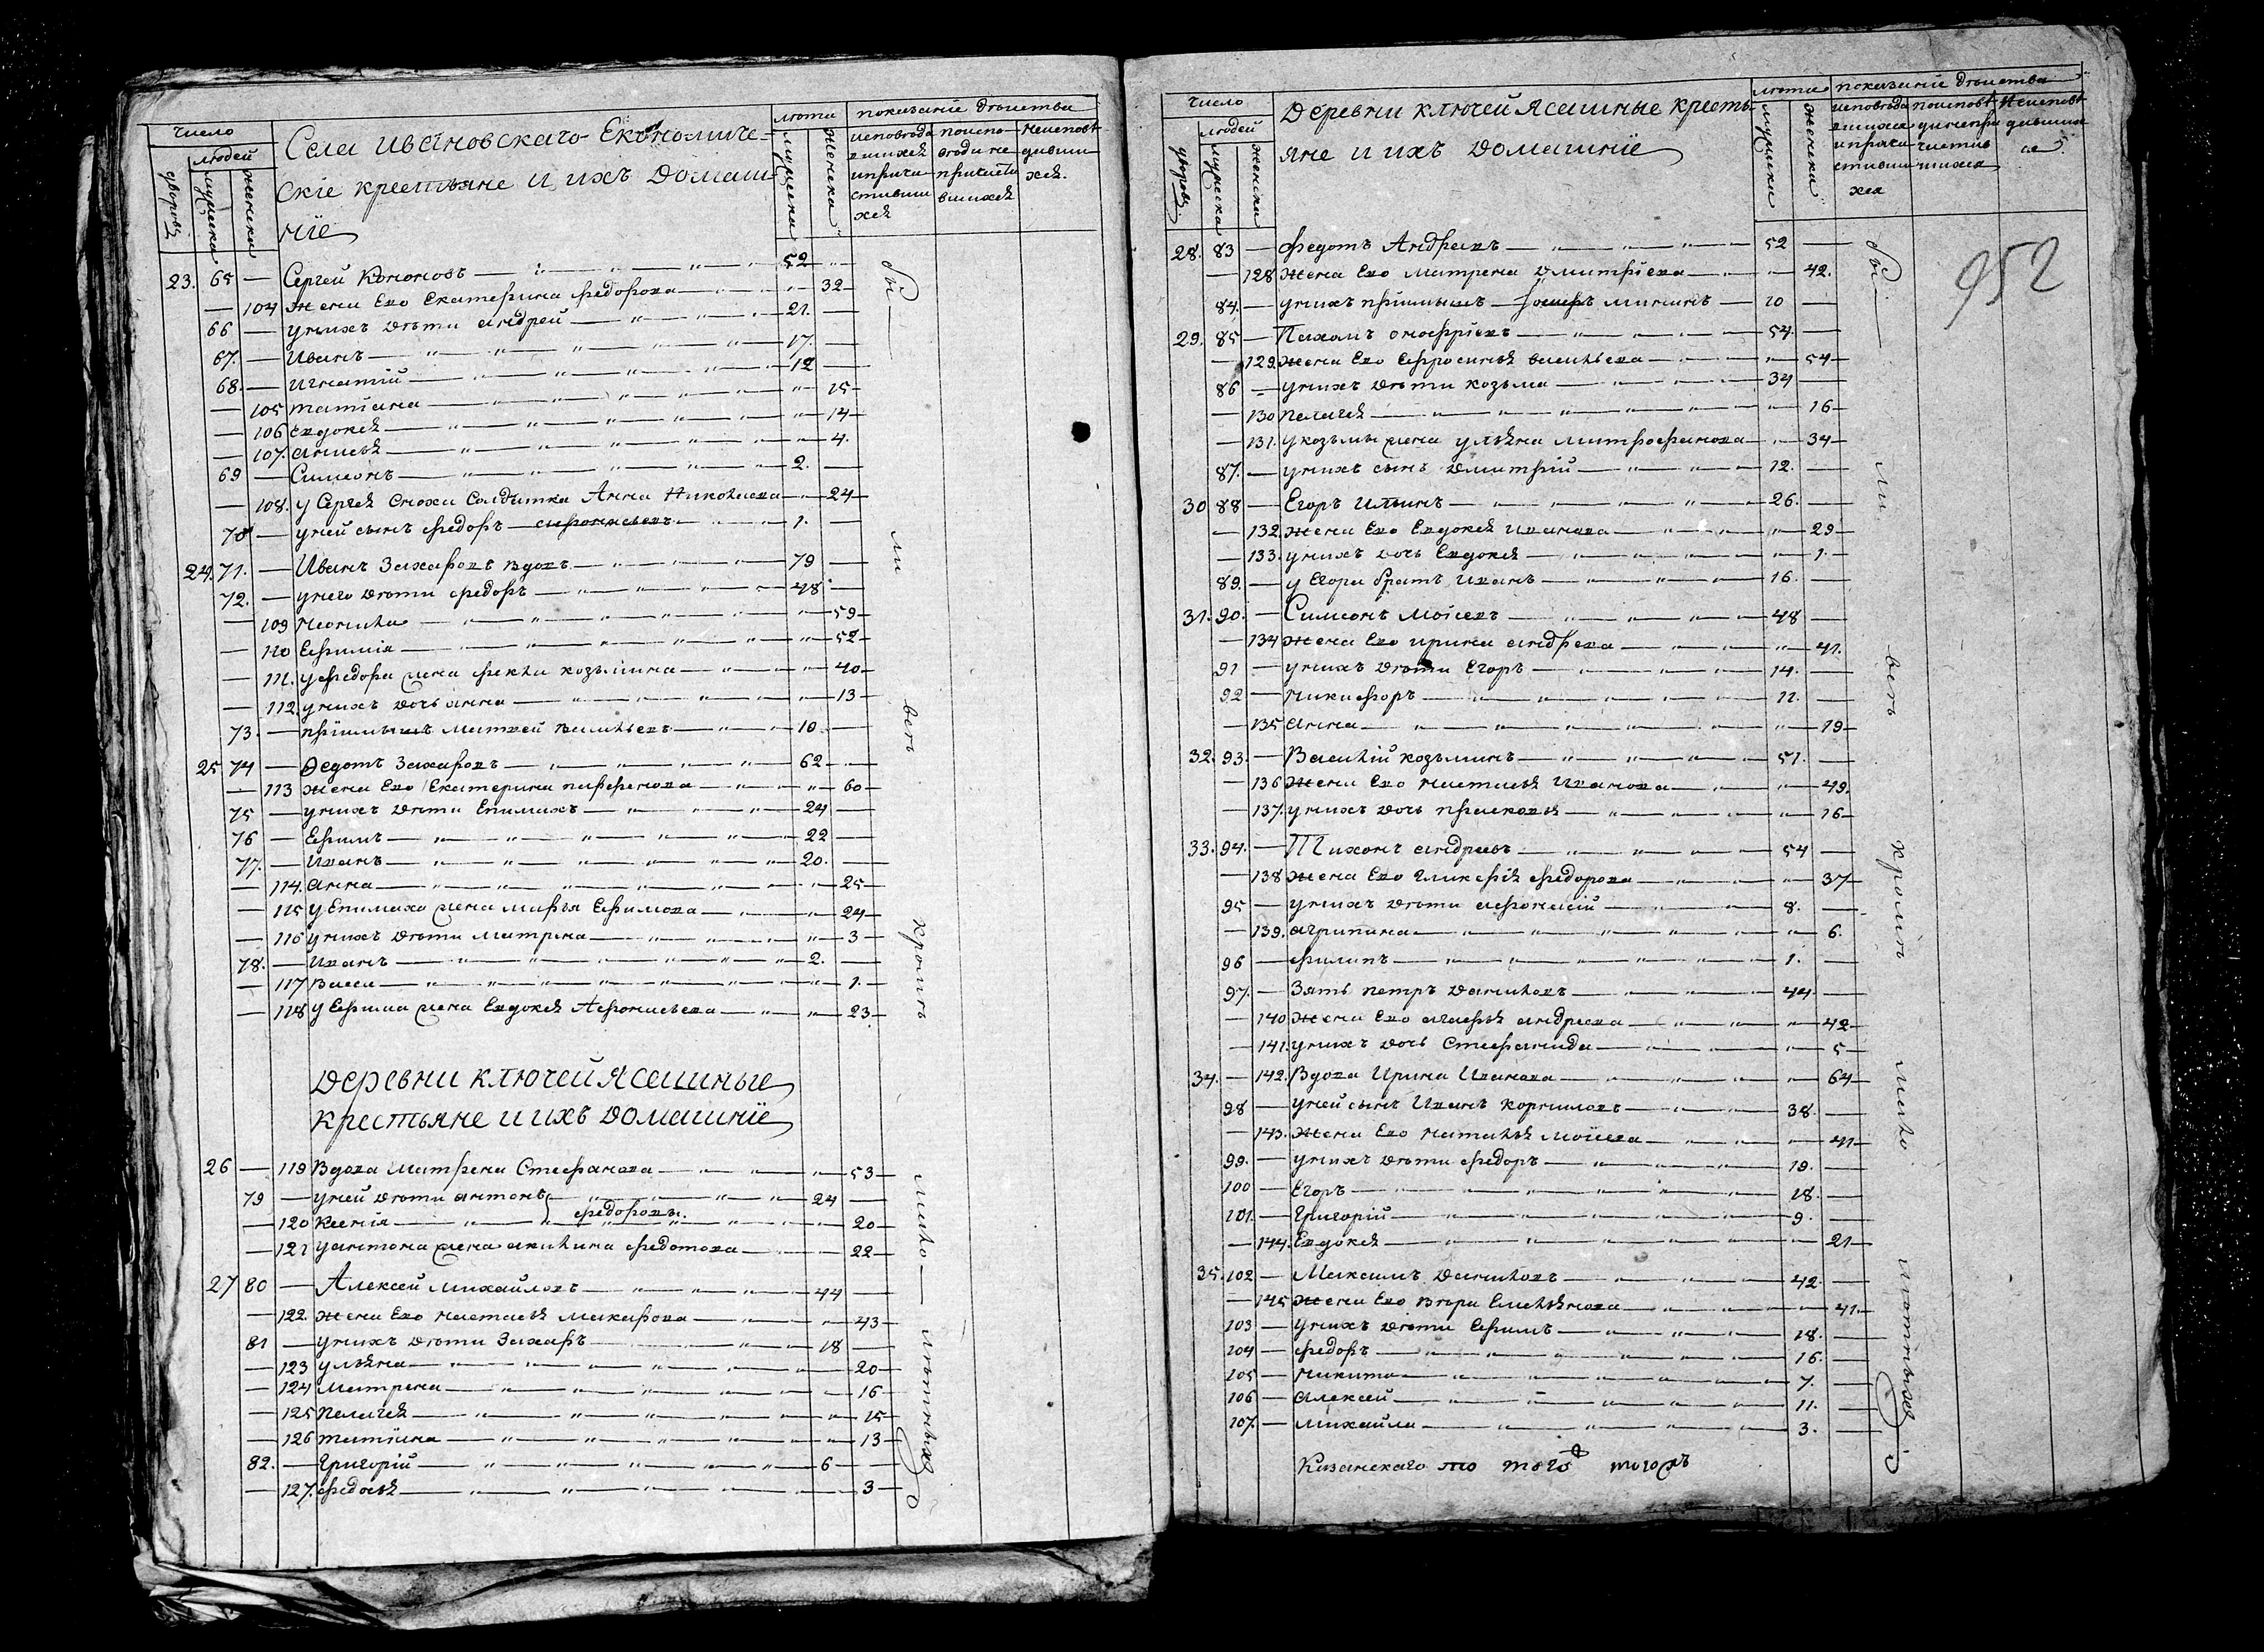 число
людей
дворовъ
мужеска
женска
Села Ивановскаго Економиче-
скіе крестьяне и ихъ домаш-
ніе
люта
мужеска
женска
показаніе дѣйства
исповѣда
вшихся
и прича
стивши
хся
поиспо-
вѣди не
причасти
вшихся
неисповѣ
давши
хся.
23. 65 — Сергей Кононовъ 52
— 104 жена Ево Екатерина Федорова 32
66 — у нихъ дѣти Андрей 21.
67. — Иванъ 17.
68. — Игнатій 12
— 105 Татіана 15
— 106 Евдокея 14
— 107. Анисья 4.
69 — Симеонъ 2.
— 108. у Сергея сноха Солдатка Анна Николаева 24
70 — у ней сынъ Федоръ Афонасьевъ 1.
24. 71. — Иванъ Захаровъ вдовъ 79
72. — у него дѣти Федоръ 48
— 109 Неонила 59
— 110 Ефимія 52
— 111. у Федора жена Фекла Козьмина 40
— 112. у нихъ дочь Анна 13
73. — пріимышъ Матвей Васильевъ 10
25 74 — Ѳедотъ Захаровъ 62
— 113 жена Ево Екатерина Парфенова 60
75 — у нихъ дѣти Епимахъ 24
76 — Ефимъ 22
77. — Иванъ 20.
— 114. Анна 25
— 115 у Епимаха жена Марья Ефимова 24
— 116 у нихъ дѣти Матрена 3
78. — Иванъ 2.
— 117 Васса 1.
— 118 у Ефима жена Евдокея Афонасьева 23
Деревни Ключей Ясашные
крестьяне и ихъ домашніе
26 — 119 Вдова Матрена Стефанова 53
79 — у ней дѣти Антонъ 24
Федоровы.
— 120 Ксенія 20
— 121 у Антона жена Акилина Федотова 22
27 80 — Алексей Михайловъ 44
— 122. жена Ево Настасья Макарова 43
81 — у нихъ дѣти Захаръ 18
— 123 Ульяна 20
— 124 Матрена 16
— 125 Пелагея 15
— 126 Татіана 13
82. — Григорій 6
— 127. Федосья 3
бы ли веѣ кромѣ мало лѣтныхъ
число
людей
дворовъ
мужеска
женска
Деревни Ключей Ясашные кресть-
яне и ихъ домашніе
люта
мужеска
женска
показаніе дѣйства
исповѣда
вшихся
и прича
стивши
хся
поисповѣ
ди непри
частив
шихся
неисповѣ
давших
ся.
952
28. 83 — Федотъ Андреевъ 52
— 128 жена Ево Матрена Дмитріева 42.
84. — у нихъ пріимышъ Іосифъ Минынъ 10
29. 85 — Пахомъ Онофріевъ 54.
— 129. жена Ево Ефросинья Васильева 54
86 — у нихъ дѣти Козьма 34
— 130 Пелагея 16
— 131. у Козьмы жена Ульяна Митрофанова 34
87. — у нихъ сынъ Дмитрій 12.
30 88 — Егоръ Ильинъ 26.
— 132. жена Ево Евдокея Иванова 29
— 133. у нихъ дочь Евдокея 1.
89. — у Егора братъ Иванъ 16.
31. 90. — Симеонъ Моисеевъ 48
— 134 жена Ево Ирина Андреева 41.
91 — у нихъ дѣти Егоръ 14.
92 — Никифоръ 11.
— 135 Анна 19
32. 93. — Василій Козьминъ 51.
— 136 жена Ево Настасья Иванова 49.
— 137. у нихъ дочь Прасковья 16
33. 94. — Тихонъ Андреевъ 54
— 138 жена Ево Гликерія Федорова 37
95 — у нихъ дѣти Афонасій 8.
— 139. Агрипина 6.
96 — Филипъ 1.
97. — Зять Петръ Даниловъ 44
— 140 жена Ево Агафья Андреева 42
— 141. у нихъ дочь Стефанида 5
34. — 142. Вдова Ирина Иванова 64
98 — у ней сынъ Иванъ Корниловъ 38.
— 143. жена Ево Наталья Моисеева 41
99. — у нихъ дѣти Федоръ 19.
100 — Егоръ 18.
101. — Григорій 9.
— 144. Евдокея 21
35. 102 — Максимъ Даниловъ 42
— 145 жена Ево Вѣра Емельянова 41.
103 — у нихъ дѣти Ефимъ 18.
104 — Федоръ 16.
105 — Никита 7.
106 — Алексей 11.
107. — Михайла 3.
бы ли веѣ кромѣ мало лѣтныхъ
Казанскаго